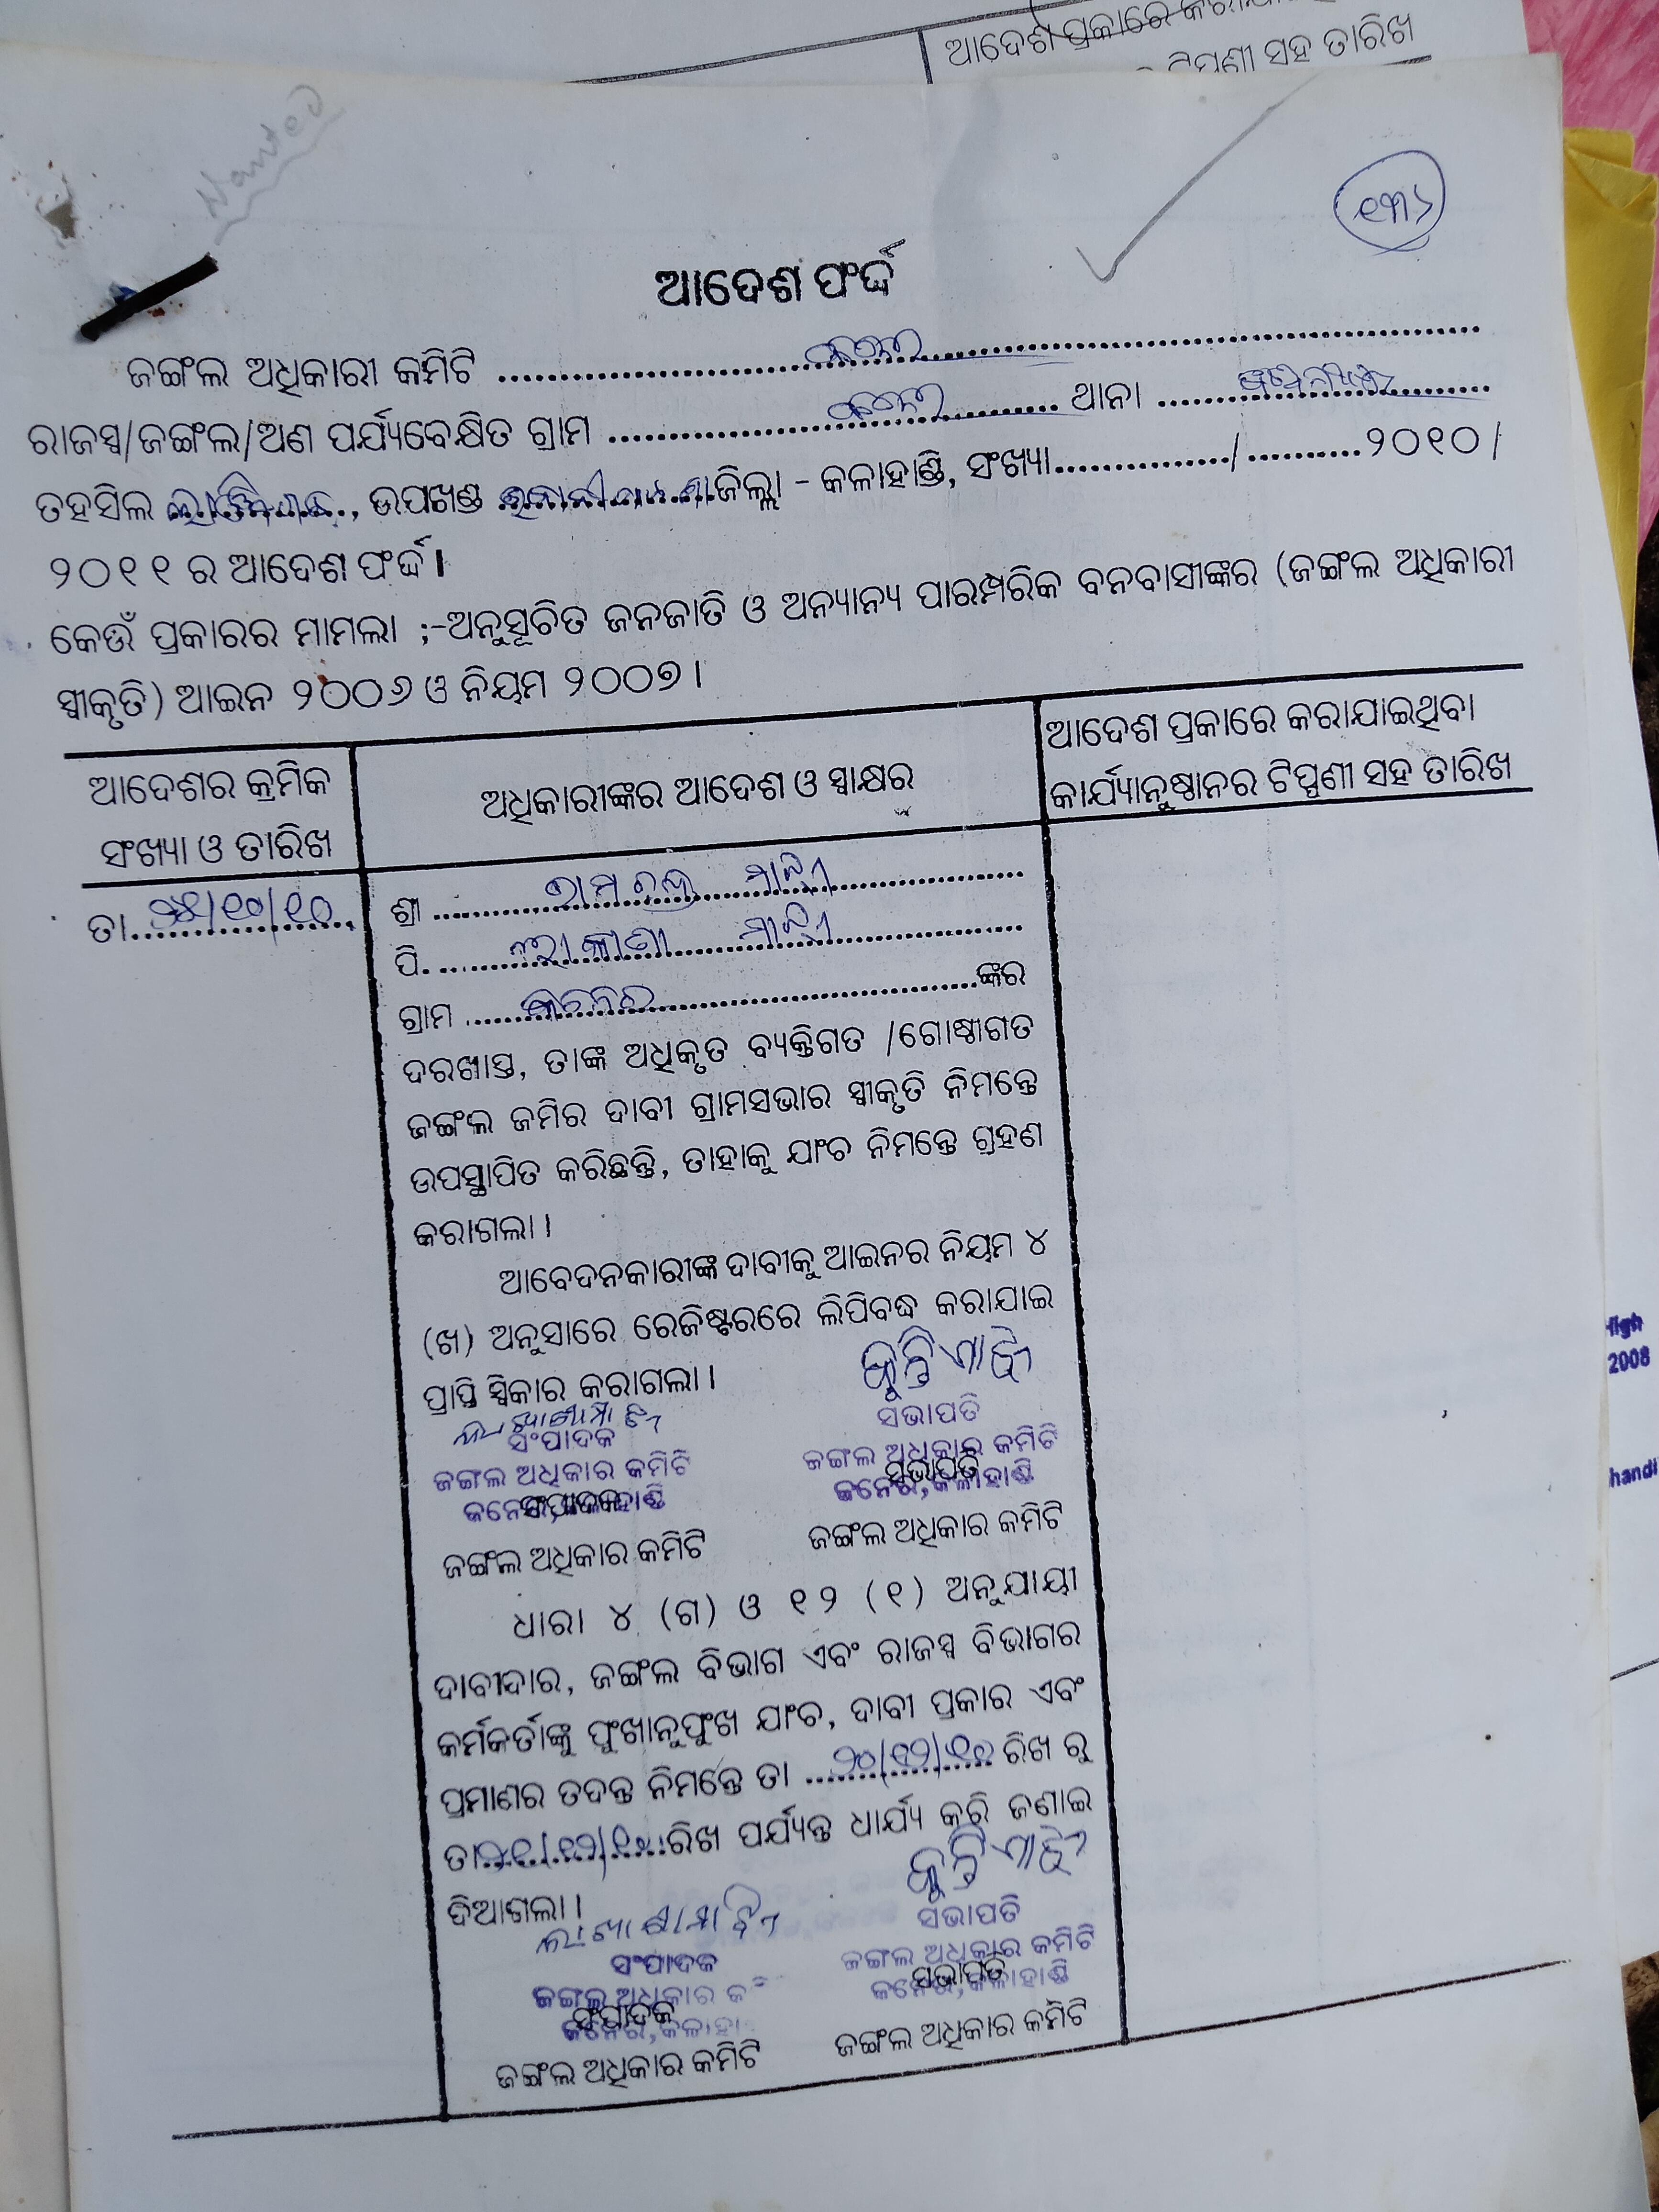 ଆଦେଶ ପ୍ରକାରେ
ଟିପ୍ପଣୀ ସହ ତାରିଖ
Wanted
୧୩୨
ଆଦେଶ ଫର୍ଦ୍ଦ
ଜଙ୍ଗଲ ଅଧିକାରୀ କମିଟି ........................
ରାଜସ୍ୱ/ଜଙ୍ଗଲ/ଅଣ ପର୍ଯ୍ୟବେକ୍ଷିତ ଗ୍ରାମ ............ ଥାନା ............
ତହସିଲ ............, ଉପଖଣ୍ଡ ............ଜିଲ୍ଲା - କଳାହାଣ୍ଡି, ସଂଖ୍ୟା............/..........୨୦୧୦/
୨୦୧୧ ର ଆଦେଶ ଫର୍ଦ୍ଦ।
କେଉଁ ପ୍ରକାରର ମାମଲା ;-ଅନୁସୂଚିତ ଜନଜାତି ଓ ଅନ୍ୟାନ୍ୟ ପାରମ୍ପରିକ ବନବାସୀଙ୍କର (ଜଙ୍ଗଲ ଅଧିକାରୀ
ସ୍ୱୀକୃତି) ଆଇନ ୨୦୦୬ ଓ ନିୟମ ୨୦୦୭।
ଆଦେଶର କ୍ରମିକ
ସଂଖ୍ୟା ଓ ତାରିଖ
ଅଧିକାରୀଙ୍କର ଆଦେଶ ଓ ସ୍ୱାକ୍ଷର
ଆଦେଶ ପ୍ରକାରେ କରାଯାଇଥିବା
କାର୍ଯ୍ୟାନୁଷ୍ଠାନର ଟିପ୍ପଣୀ ସହ ତାରିଖ
ତା. ୨୫/୧୦/୧୦
ଶ୍ରୀ ........ ମାଝୀ
ପି. ........ ମାଝୀ
ଗ୍ରାମ ........ଙ୍କର
ଦରଖାସ୍ତ, ତାଙ୍କ ଅଧିକୃତ ବ୍ୟକ୍ତିଗତ /ଗୋଷ୍ଠୀଗତ
ଜଙ୍ଗଲ ଜମିର ଦାବୀ ଗ୍ରାମସଭାର ସ୍ୱୀକୃତି ନିମନ୍ତେ
ଉପସ୍ଥାପିତ କରିଛନ୍ତି, ତାହାକୁ ଯାଂଚ ନିମନ୍ତେ ଗ୍ରହଣ
କରାଗଲା।
ଆବେଦନକାରୀଙ୍କ ଦାବୀକୁ ଆଇନର ନିୟମ ୪
(ଖ) ଅନୁସାରେ ରେଜିଷ୍ଟରରେ ଲିପିବଦ୍ଧ କରାଯାଇ
ପ୍ରାପ୍ତି ସ୍ୱିକାର କରାଗଲା।
ସଂପାଦକ
ଜଙ୍ଗଲ ଅଧିକାର କମିଟି
ସଂପାଦକ
ଜଙ୍ଗଲ ଅଧିକାର କମିଟି
ସଭାପତି
ଜଙ୍ଗଲ ଅଧିକାର କମିଟି
ସଭାପତି
କନେର,କଳାହାଣ୍ଡି
ଜଙ୍ଗଲ ଅଧିକାର କମିଟି
ଧାରା ୪ (ଗ) ଓ ୧୨ (୧) ଅନୁଯାୟୀ
ଦାବୀଦାର, ଜଙ୍ଗଲ ବିଭାଗ ଏବଂ ରାଜସ୍ୱ ବିଭାଗର
କର୍ମକର୍ତାଙ୍କୁ ଫୁଂଖାନୁଫୁଂଖ ଯାଂଚ, ଦାବୀ ପ୍ରକାର ଏବଂ
ପ୍ରମାଣର ତଦନ୍ତ ନିମନ୍ତେ ତା ୨୦/୧୨/୧୦ ରିଖ ରୁ
ତା ୨୧/୧୨/୧୦ ରିଖ ପର୍ଯ୍ୟନ୍ତ ଧାର୍ଯ୍ୟ କରି ଜଣାଇ
ଦିଆଗଲା।
ସଂପାଦକ
ଜଙ୍ଗଲ ଅଧିକାର
ସଂପାଦକ
ଜଙ୍ଗଲ ଅଧିକାର କମିଟି
ସଭାପତି
ଜଙ୍ଗଲ ଅଧିକାର କମିଟି
ସଭାପତି
କନେର,କଳାହାଣ୍ଡି
ଜଙ୍ଗଲ ଅଧିକାର କମିଟି
2008